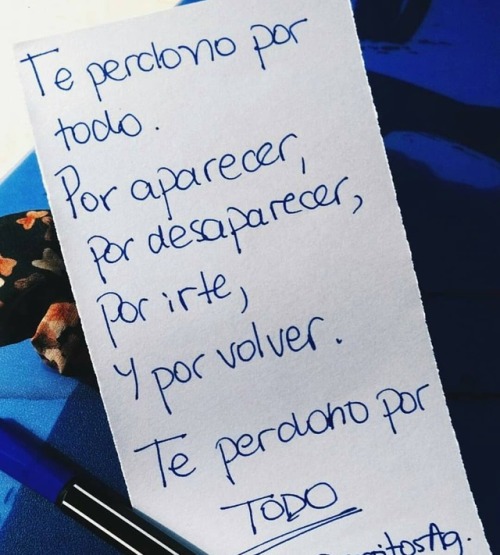 Te perdono por
todo.
Por aparecer,
por desaparecer,
por irte,
y por volver.
Te perdono por
TODO